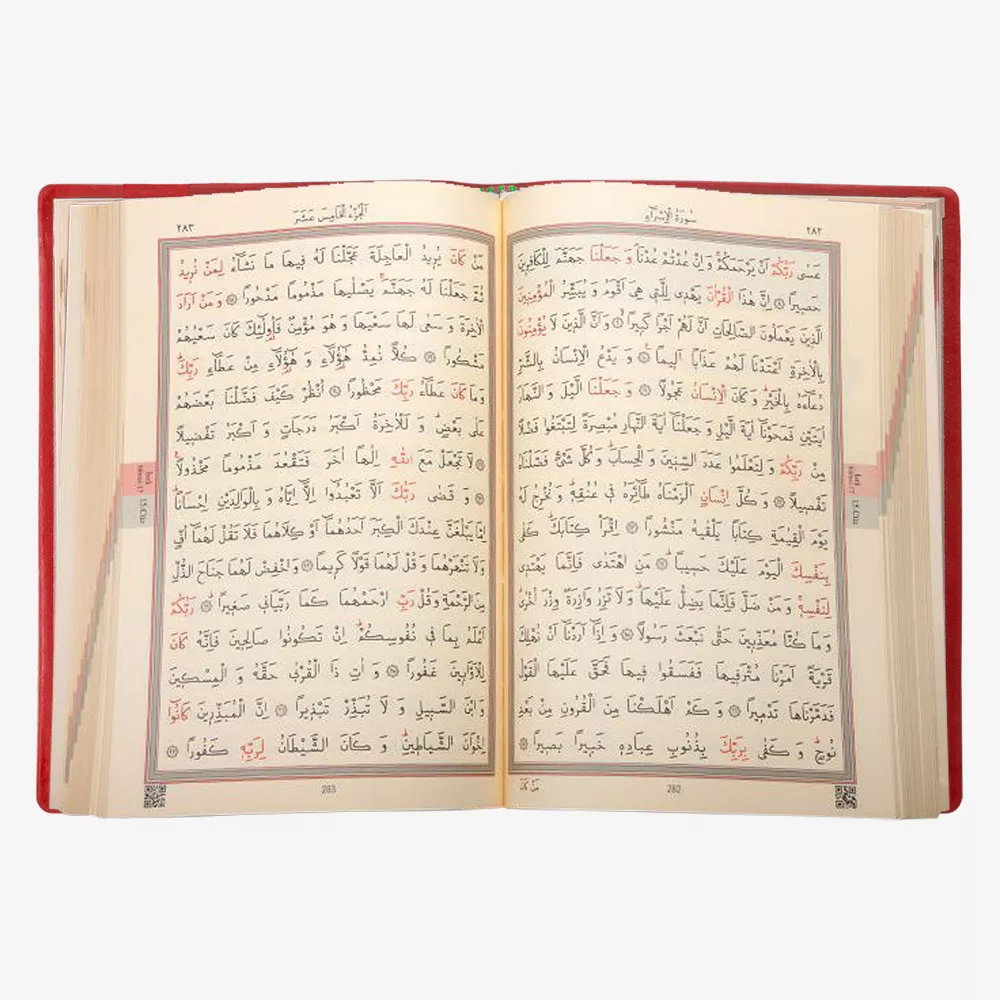 سُورَةُ الْاِسْرَاءِ ٢٨٢
عَسٰى رَبُّكُمْ اَنْ يَرْحَمَكُمْ وَاِنْ عُدْتُمْ عُدْنَا وَجَعَلْنَا جَهَنَّمَ لِلْكَافِرِينَ
حَصِيرًا ﴿٨﴾ اِنَّ هٰذَا الْقُرْاٰنَ يَهْدِى لِلَّتِى هِىَ اَقْوَمُ وَيُبَشِّرُ الْمُؤْمِنِينَ
الَّذِينَ يَعْمَلُونَ الصَّالِحَاتِ اَنَّ لَهُمْ اَجْرًا كَبِيرًا ﴿٩﴾ وَاَنَّ الَّذِينَ لَا يُؤْمِنُونَ
بِالْاٰخِرَةِ اَعْتَدْنَا لَهُمْ عَذَابًا اَلِيمًا ﴿١٠﴾ وَيَدْعُ الْاِنْسَانُ بِالشَّرِّ
دُعَاءَهُ بِالْخَيْرِ وَكَانَ الْاِنْسَانُ عَجُولًا ﴿١١﴾ وَجَعَلْنَا الَّيْلَ وَالنَّهَارَ
اٰيَتَيْنِ فَمَحَوْنَا اٰيَةَ الَّيْلِ وَجَعَلْنَا اٰيَةَ النَّهَارِ مُبْصِرَةً لِتَبْتَغُوا فَضْلًا
مِنْ رَبِّكُمْ وَلِتَعْلَمُوا عَدَدَ السِّنِينَ وَالْحِسَابَ وَكُلَّ شَىْءٍ فَصَّلْنَاهُ
تَفْصِيلًا ﴿١٢﴾ وَكُلَّ اِنْسَانٍ اَلْزَمْنَاهُ طَائِرَهُ فِى عُنُقِهِ وَنُخْرِجُ لَهُ
يَوْمَ الْقِيٰمَةِ كِتَابًا يَلْقٰيهُ مَنْشُورًا ﴿١٣﴾ اِقْرَاْ كِتَابَكَ كَفٰى
بِنَفْسِكَ الْيَوْمَ عَلَيْكَ حَسِيبًا ﴿١٤﴾ مَنِ اهْتَدٰى فَاِنَّمَا يَهْتَدِى
لِنَفْسِهِ وَمَنْ ضَلَّ فَاِنَّمَا يَضِلُّ عَلَيْهَا وَلَا تَزِرُ وَازِرَةٌ وِزْرَ اُخْرٰى
وَمَا كُنَّا مُعَذِّبِينَ حَتّٰى نَبْعَثَ رَسُولًا ﴿١٥﴾ وَاِذَا اَرَدْنَا اَنْ نُهْلِكَ
قَرْيَةً اَمَرْنَا مُتْرَفِيهَا فَفَسَقُوا فِيهَا فَحَقَّ عَلَيْهَا الْقَوْلُ
فَدَمَّرْنَاهَا تَدْمِيرًا ﴿١٦﴾ وَكَمْ اَهْلَكْنَا مِنَ الْقُرُونِ مِنْ بَعْدِ
نُوحٍ وَكَفٰى بِرَبِّكَ بِذُنُوبِ عِبَادِهِ خَبِيرًا بَصِيرًا ﴿١٧﴾
مَنْ كَانَ
282
15.Cüz
٢٨٣ اَلْجُزْءُ الْخَامِسَ عَشَرَ
مَنْ كَانَ يُرِيدُ الْعَاجِلَةَ عَجَّلْنَا لَهُ فِيهَا مَا نَشَاءُ لِمَنْ نُرِيدُ
ثُمَّ جَعَلْنَا لَهُ جَهَنَّمَ يَصْلٰيهَا مَذْمُومًا مَدْحُورًا ﴿١٨﴾ وَمَنْ اَرَادَ
الْاٰخِرَةَ وَسَعٰى لَهَا سَعْيَهَا وَهُوَ مُؤْمِنٌ فَاُولٰئِكَ كَانَ سَعْيُهُمْ
مَشْكُورًا ﴿١٩﴾ كُلًّا نُمِدُّ هٰؤُلَاءِ وَهٰؤُلَاءِ مِنْ عَطَاءِ رَبِّكَ
وَمَا كَانَ عَطَاءُ رَبِّكَ مَحْظُورًا ﴿٢٠﴾ اُنْظُرْ كَيْفَ فَضَّلْنَا بَعْضَهُمْ
عَلٰى بَعْضٍ وَلَلْاٰخِرَةُ اَكْبَرُ دَرَجَاتٍ وَاَكْبَرُ تَفْضِيلًا
﴿٢١﴾ لَا تَجْعَلْ مَعَ اللّٰهِ اِلٰهًا اٰخَرَ فَتَقْعُدَ مَذْمُومًا مَخْذُولًا
﴿٢٢﴾ وَقَضٰى رَبُّكَ اَلَّا تَعْبُدُوا اِلَّا اِيَّاهُ وَبِالْوَالِدَيْنِ اِحْسَانًا
اِمَّا يَبْلُغَنَّ عِنْدَكَ الْكِبَرَ اَحَدُهُمَا اَوْ كِلَاهُمَا فَلَا تَقُلْ لَهُمَا اُفٍّ
وَلَا تَنْهَرْهُمَا وَقُلْ لَهُمَا قَوْلًا كَرِيمًا ﴿٢٣﴾ وَاخْفِضْ لَهُمَا جَنَاحَ الذُّلِّ
مِنَ الرَّحْمَةِ وَقُلْ رَبِّ ارْحَمْهُمَا كَمَا رَبَّيَانِى صَغِيرًا ﴿٢٤﴾ رَبُّكُمْ
اَعْلَمُ بِمَا فِى نُفُوسِكُمْ اِنْ تَكُونُوا صَالِحِينَ فَاِنَّهُ كَانَ
لِلْاَوَّابِينَ غَفُورًا ﴿٢٥﴾ وَاٰتِ ذَا الْقُرْبٰى حَقَّهُ وَالْمِسْكِينَ
وَابْنَ السَّبِيلِ وَلَا تُبَذِّرْ تَبْذِيرًا ﴿٢٦﴾ اِنَّ الْمُبَذِّرِينَ كَانُوا
اِخْوَانَ الشَّيَاطِينِ وَكَانَ الشَّيْطَانُ لِرَبِّهِ كَفُورًا ﴿٢٧﴾
283
15.Cüz